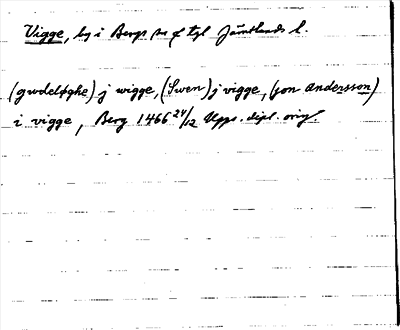 Vigge, by i Bergs sn o tgl Jämtlands l.
(gwdeløghe) j wigge, (Swen) j vigge, (jon andersson)
i vigge, Berg 1466 24/12 Upps. dipl. orig.